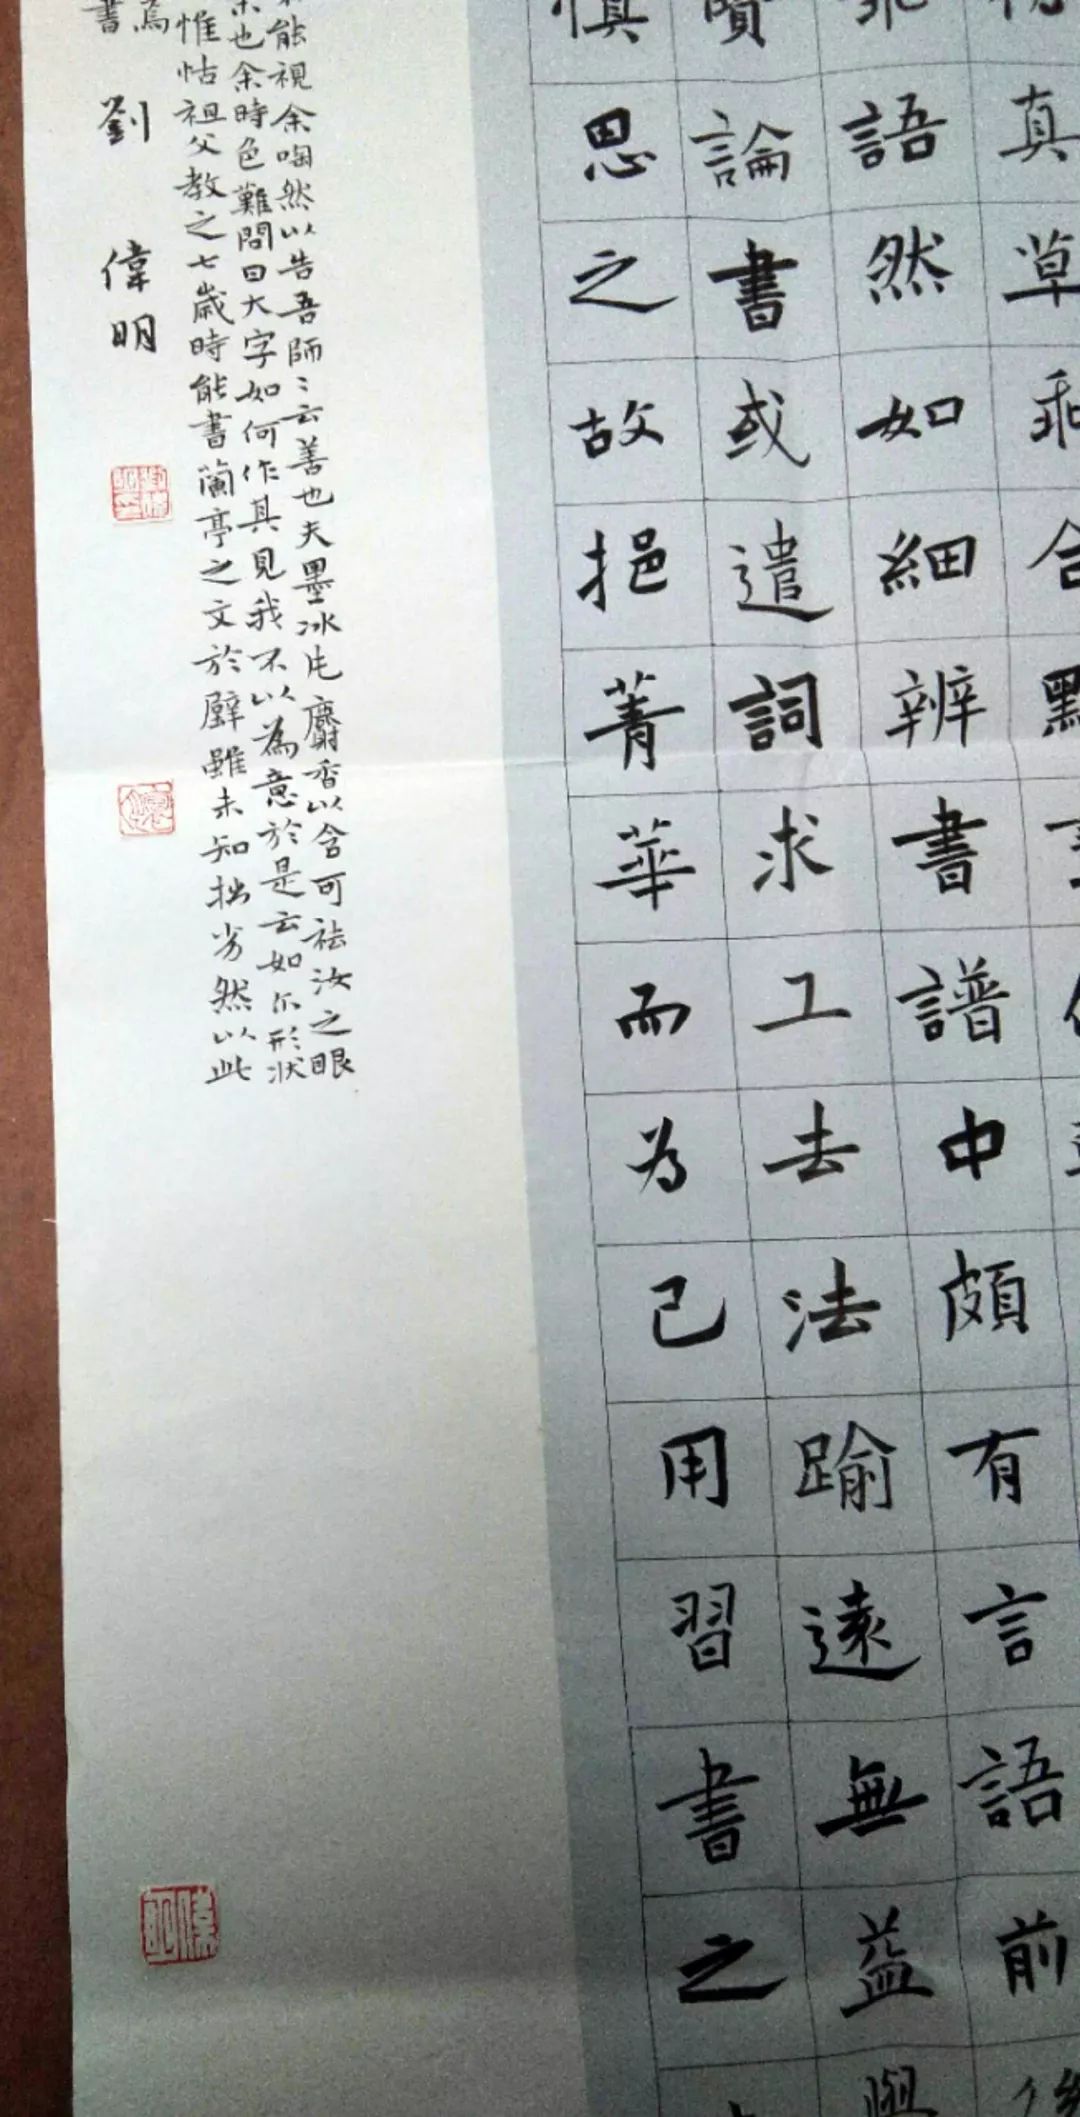 真草乖合
語然如細辨書譜中頗有言語前後
論書或遣詞求工去法踰遠無益與
慎思之故挹菁華而為己用習書之
能視余啕然以告吾師〻云善也夫墨冰片麝香以含可祛汝之眼
也余時色難問曰大字如何作其見我不以為意於是云如尔形狀
惟怙祖父教之七歲時能書蘭亭之文於壁雖未知拙劣然以此
焉
書 劉偉明
偉明